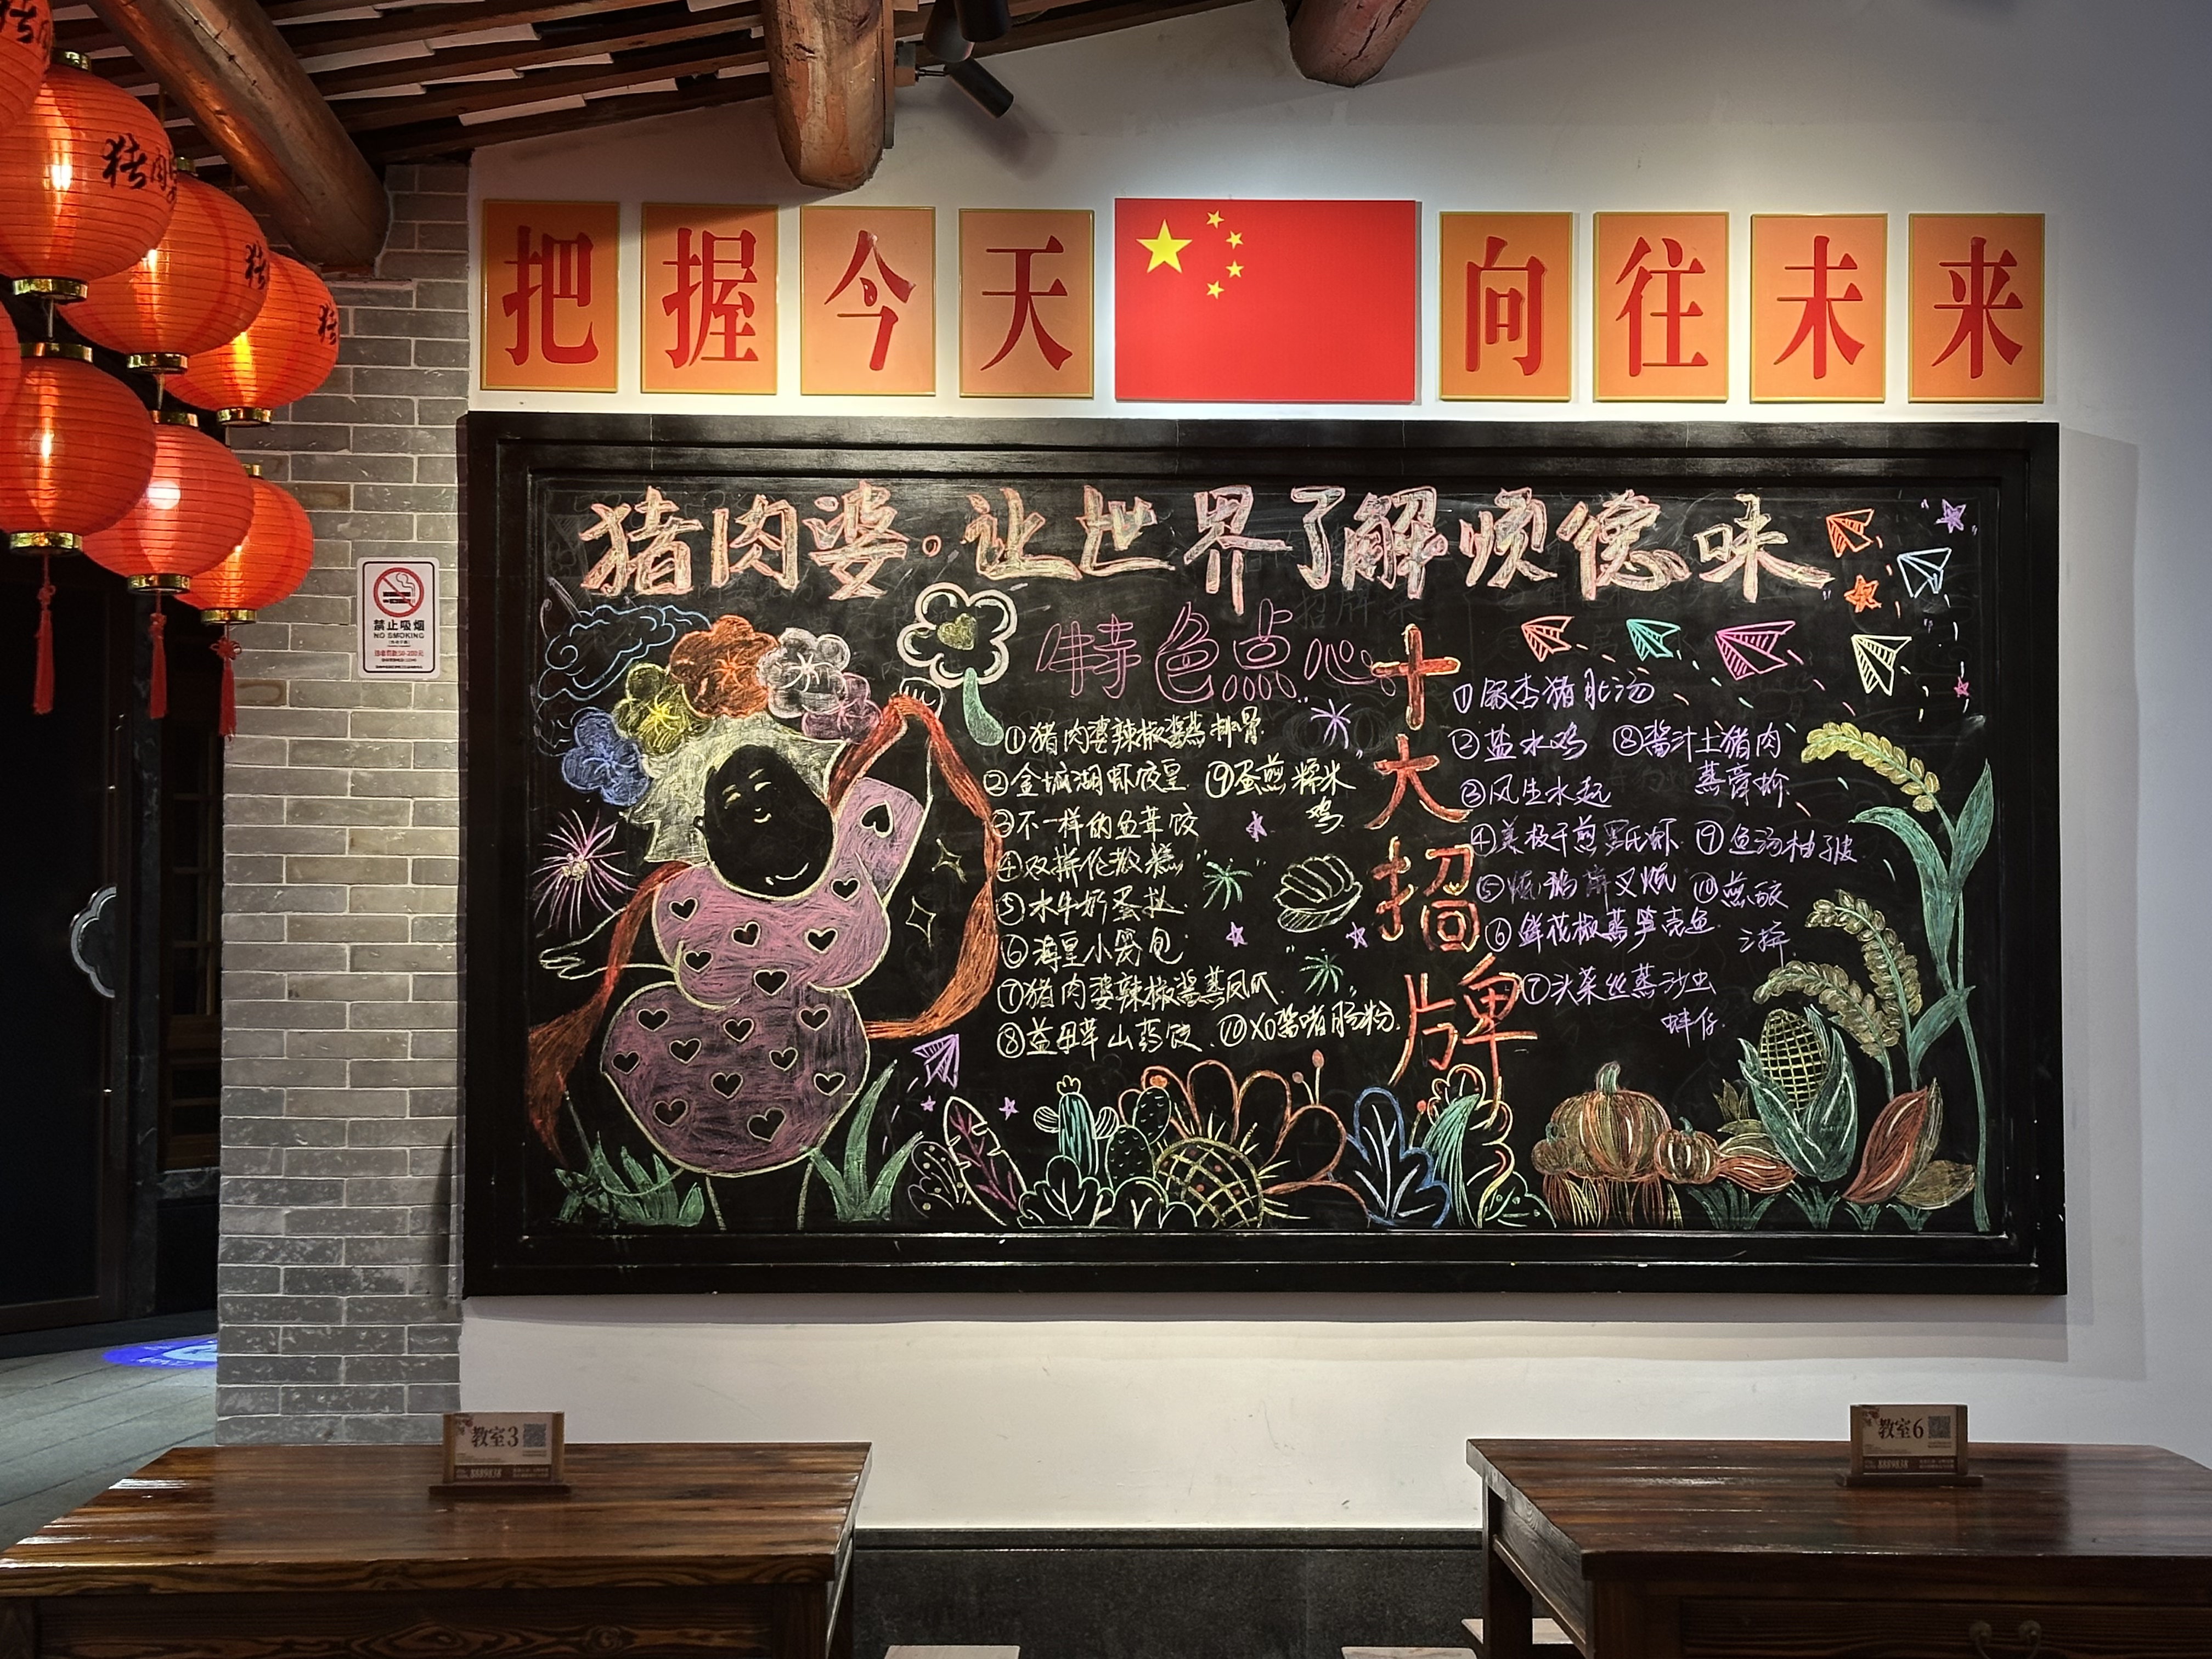 把握今天 向往未来
猪肉婆
猪
猪
禁止吸烟
NO SMOKING
猪肉婆·让世界了解顺德味
特色点心
①猪肉婆辣椒酱蒸排骨
②金城湖虾饺皇
③不一样的鱼茸饺
④双拼伦教糕
⑤水牛奶蛋挞
⑥海皇小笼包
⑦猪肉婆辣椒酱蒸凤爪
⑧益母草山药饺
⑨蛋煎糯米鸡
⑩XO酱啫肠粉
十大招牌
①银杏猪肚汤
②盐水鸡
③风生水起
④美极干煎罗氏虾
⑤烧鹅拼叉烧
⑥鲜花椒蒸笋壳鱼
⑦头菜丝蒸沙虫蚌仔
⑧酱汁土猪肉蒸膏蚧
⑨鱼汤柚子皮
⑩煎饺三拼
教室3
8889838
教室6
8889838